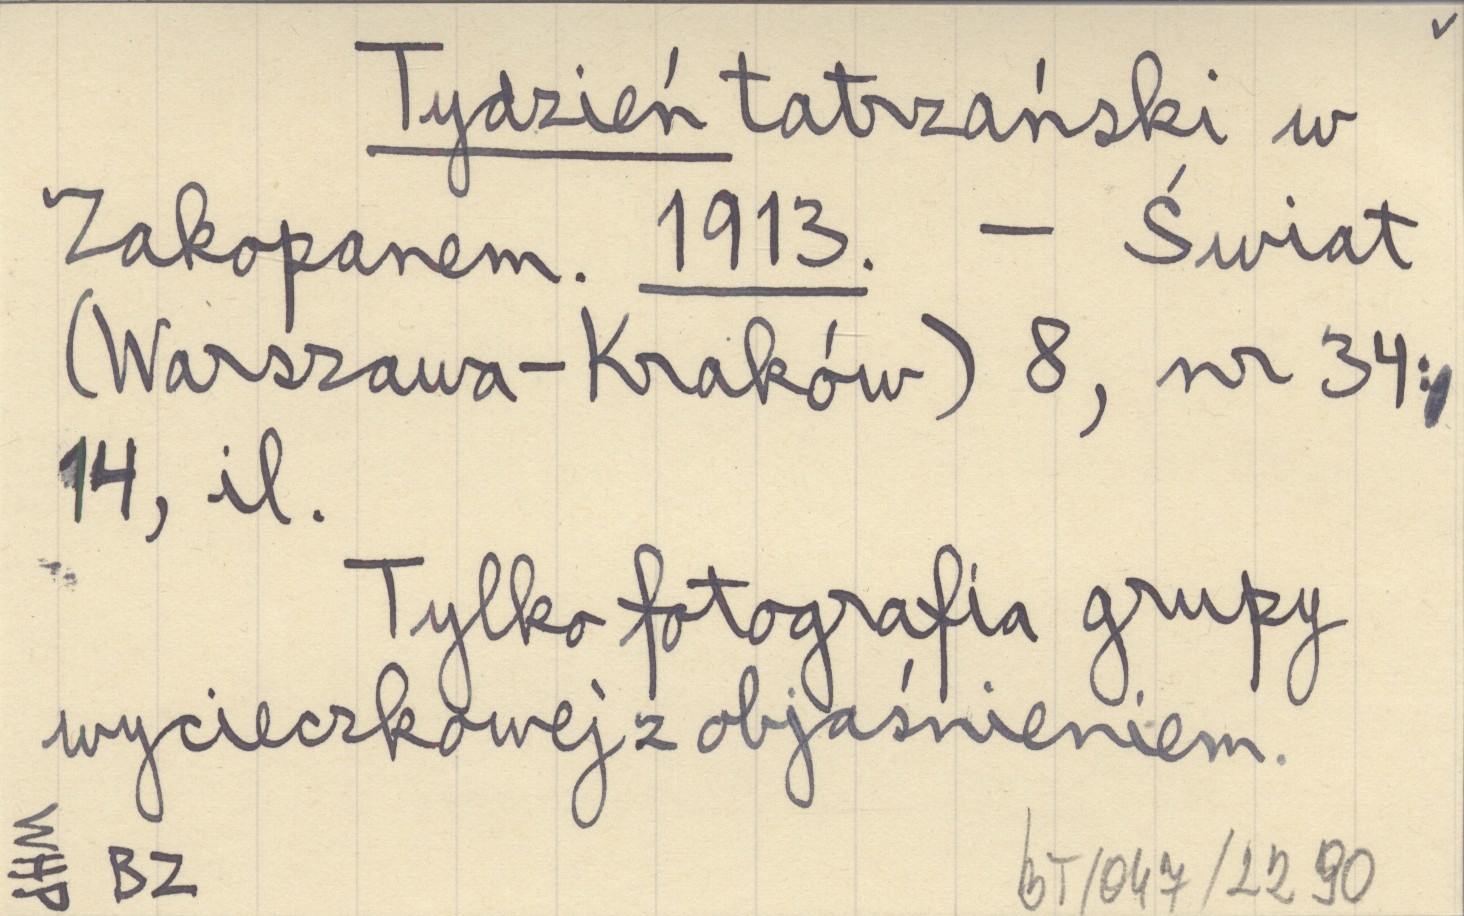 Tydzień tatrzański w
Zakopanem. 1913. — Świat
(Warszawa-Kraków) 8, nr 34:
14, il.
Tylko fotografia grupy
wycieczkowej z objaśnieniem.
WHP BZ
bT/047/2290